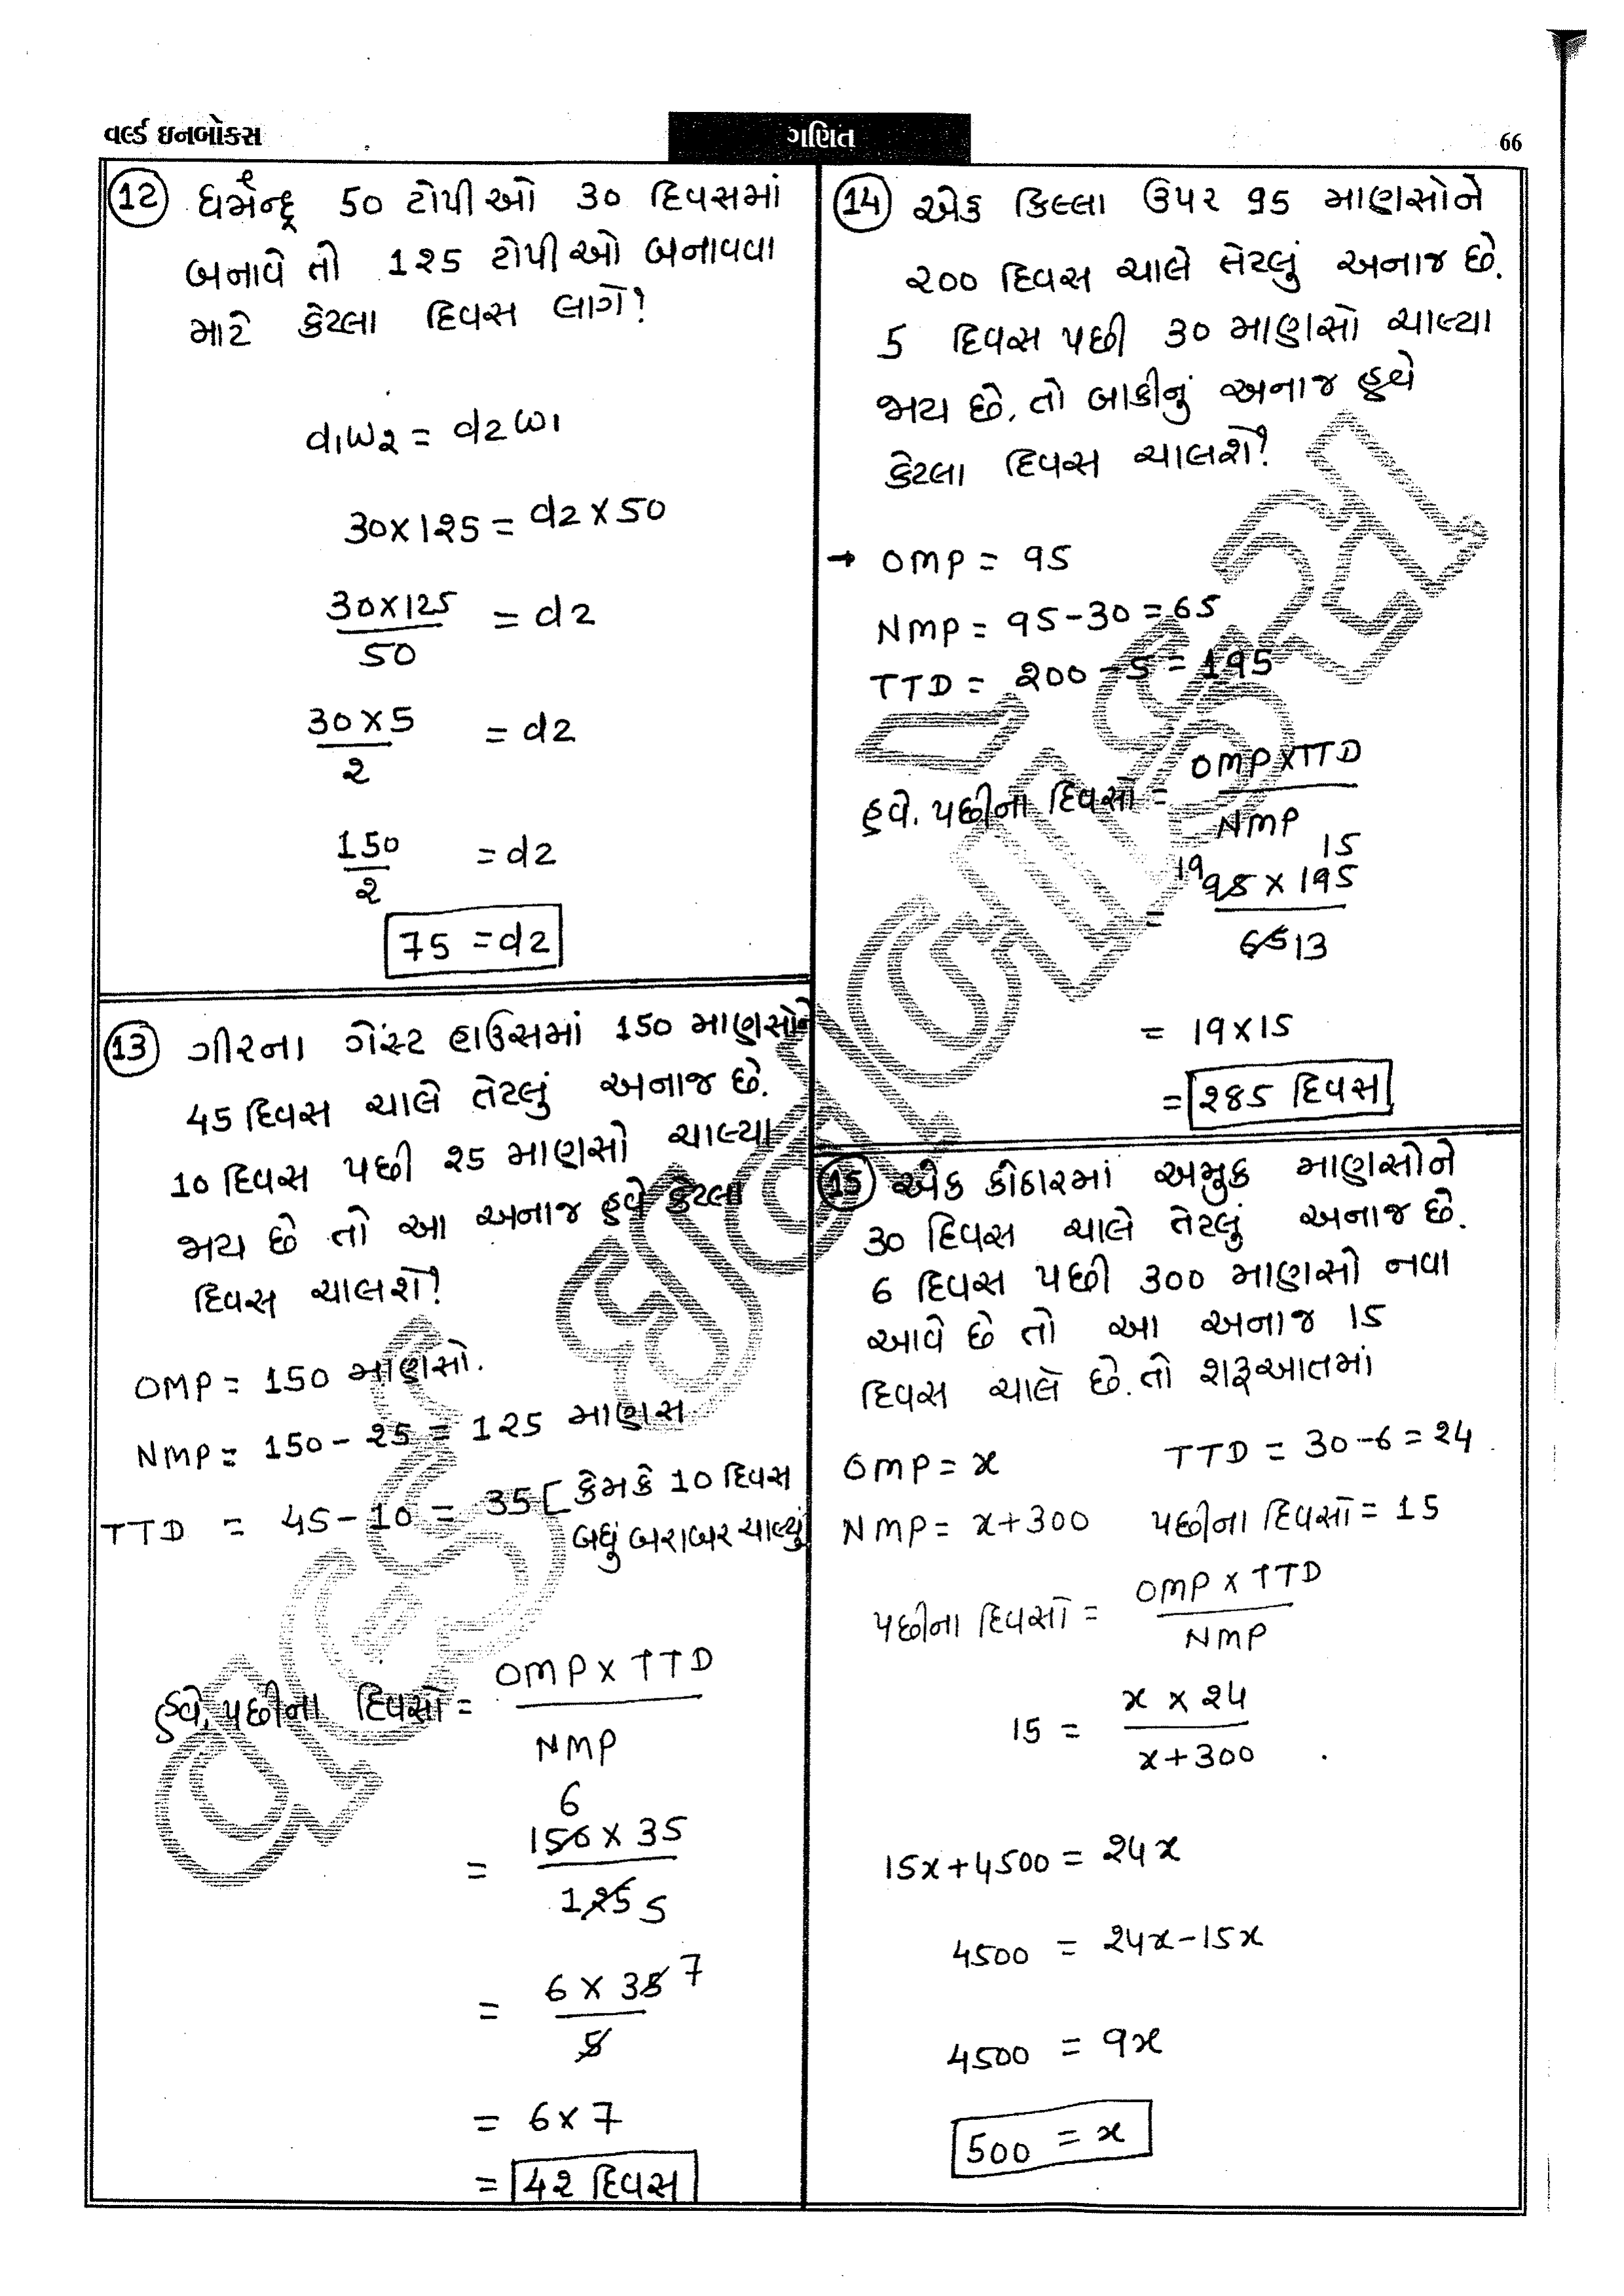 વર્લ્ડ ઇનબોક્સ
ગણિત
66
12 ધર્મેન્દ્ર 50 ટોપીઓ 30 દિવસમાં
બનાવે તો 125 ટોપીઓ બનાવવા
માટે કેટલા દિવસ લાગે?
d1w2 = d2w1
30×125 = d2×50
30×125
50
= d2
30×5
2
= d2
150
2
= d2
75 = d2
13 ગીરના ગેસ્ટ હાઉસમાં 150 માણસોને
45 દિવસ ચાલે તેટલું અનાજ છે.
10 દિવસ પછી 25 માણસો ચાલ્યા
જાય છે તો આ અનાજ હવે કેટલા
દિવસ ચાલશે?
OMP = 150 માણસો.
NMP = 150 - 25 = 125 માણસ
TTD = 45 - 10 = 35 [ કેમકે 10 દિવસ
બધું બરાબર ચાલ્યું
હવે, પછીના દિવસો = OMP × TTD
NMP
6
= 150 × 35
125 5
= 6 × 35 7
5
= 6×7
= 42 દિવસ
14 એક કિલ્લા ઉપર 95 માણસોને
200 દિવસ ચાલે તેટલું અનાજ છે.
5 દિવસ પછી 30 માણસો ચાલ્યા
જાય છે. તો બાકીનું અનાજ હવે
કેટલા દિવસ ચાલશે?
→ OMP = 95
NMP = 95-30 = 65
TTD = 200 - 5 = 195
હવે. પછીના દિવસો = OMP×TTD
NMP
19 15
= 95 × 195
65 13
= 19×15
= 285 દિવસ
15 એક કોઠારમાં અમુક માણસોને
30 દિવસ ચાલે તેટલું અનાજ છે.
6 દિવસ પછી 300 માણસો નવા
આવે છે તો આ અનાજ 15
દિવસ ચાલે છે. તો શરૂઆતમાં
OMP = x TTD = 30-6 = 24
NMP = x+300 પછીના દિવસો = 15
પછીના દિવસો = OMP × TTD
NMP
15 = x × 24
x+300
15x+4500 = 24x
4500 = 24x-15x
4500 = 9x
500 = x